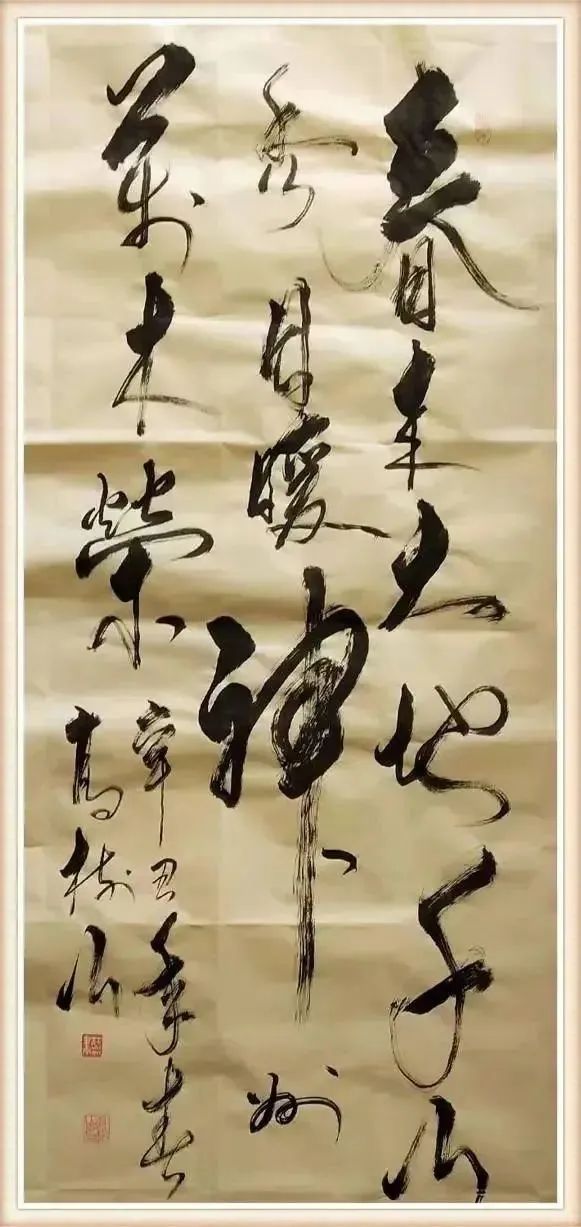 春来大地千山
秀日暖神州
萬木榮
辛丑年春
高樹山